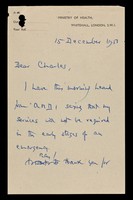 MINISTRY OF HEALTH,
WHITEHALL, LONDON, S.W.1
15 December 1951
Dear Charles,
I have this morning heard
from saying that my
services will not be required
in the early stages of an
emergency.
May I
thank you for